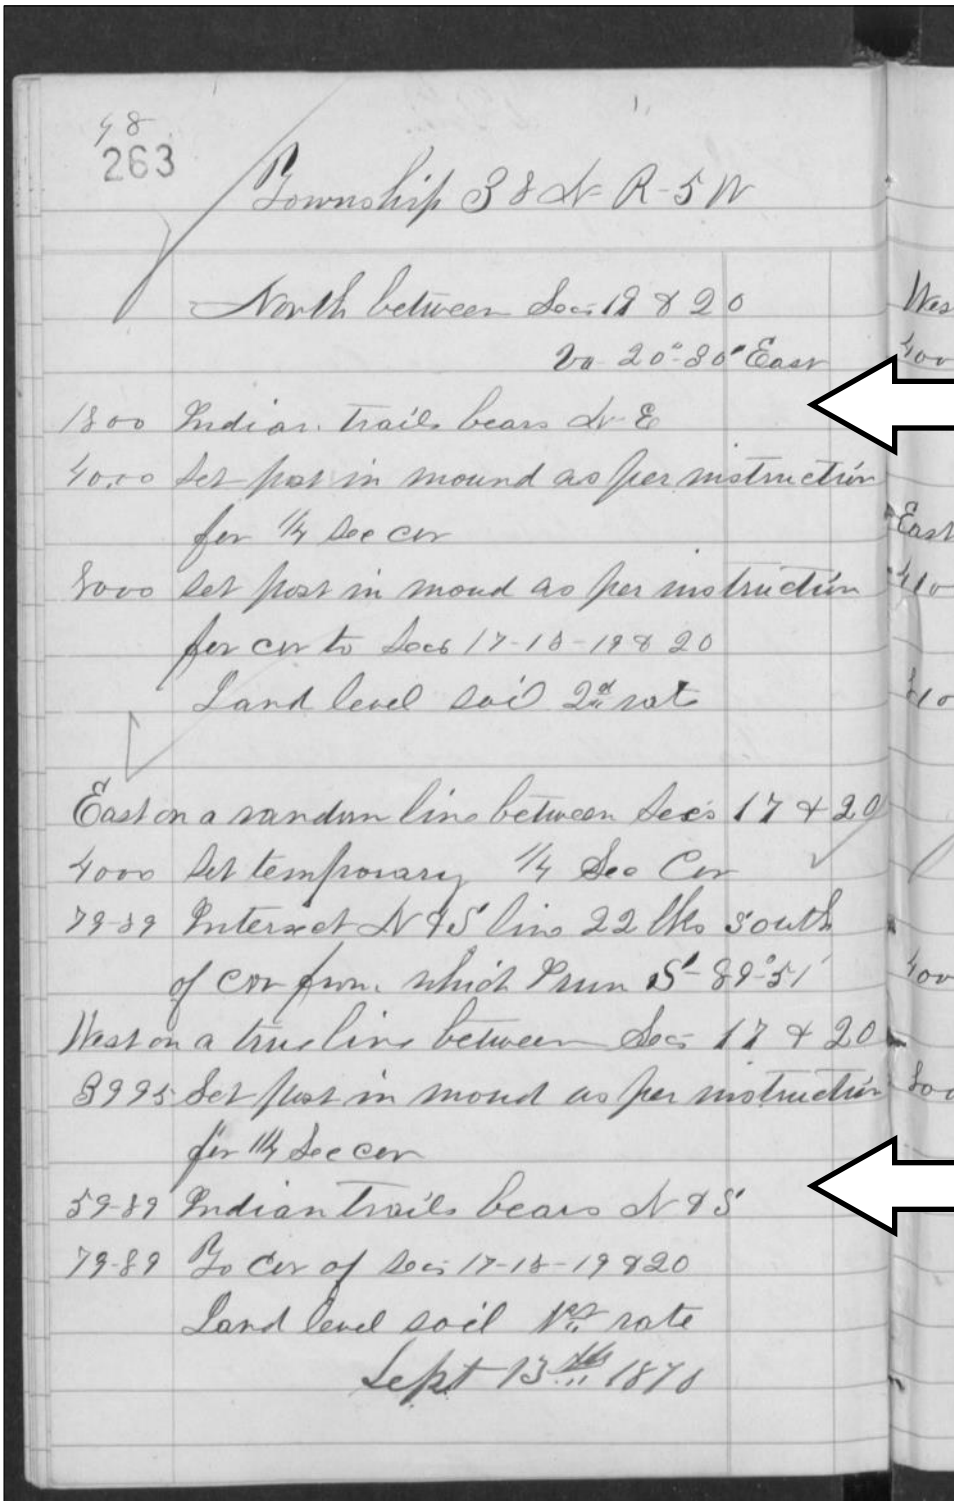 48
263
Township 38 N R-5 W
North between Secs 19 & 20
Va 20°-30' East
1800 Indian trails bears N-E
40,00 Set post in mound as per instruction
for 1/4 Sec cor
8000 Set post in mound as per instruction
for cor to Secs 17-18-19 & 20
Land level soil 2nd rate
East on a random line between Secs 17 & 20
4000 Set temporary 1/4 Sec Cor
79-89 Intersect N & S line 22 lks South
of cor from which I run S-89°-51'
West on a true line between Secs 17 & 20
3995 Set post in mound as per instruction
for 1/4 Sec cor
59-89 Indian trails bears N & S
79-89 To cor of Secs 17-18-19 & 20
Land level soil 1st rate
Sept 13th 1870
Wes
400
East
400